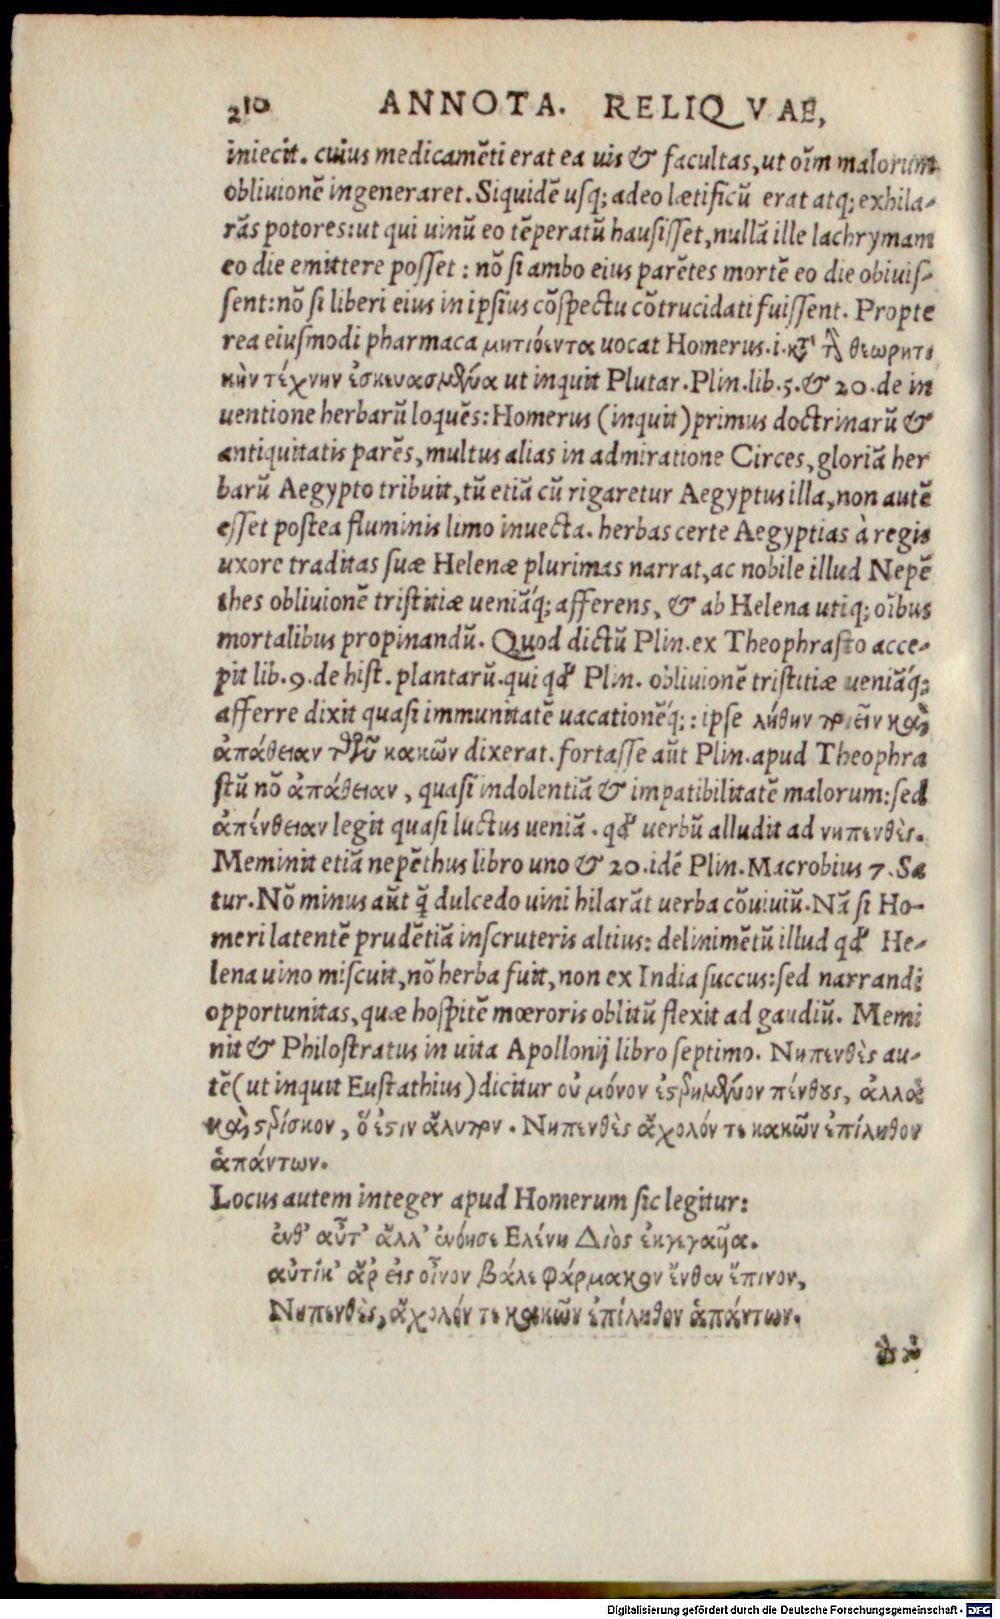 210 ANNOTA. RELIQVAE,
iniecit. cuius medicamēti erat ea uis & facultas, ut oīm malorum
obliuionē ingeneraret. Siquidē usq; adeo lætificū erat atq; exhila-
rās potores: ut qui uinū eo tēperatū hausisset, nullā ille lachrymam
eo die emittere posset: nō si ambo eius parētes mortē eo die obiuis-
sent: nō si liberi eius in ipsius cōspectu cōtrucidati fuissent. Propte
rea eiusmodi pharmaca μητιόεντα uocat Homerus. i. κτ̀ τ̀ θεωρητι
κὴν τέχνην ἐσκευασμένα ut inquit Plutar. Plin. lib. 5. & 20. de in
uentione herbarū loquēs: Homerus (inquit) primus doctrinarū &
antiquitatis parēs, multus alias in admiratione Circes, gloriā her
barū Aegypto tribuit, tū etiā cū rigaretur Aegyptus illa, non autē
esset postea fluminis limo inuecta. herbas certe Aegyptias à regis
uxore traditas suæ Helenæ plurimas narrat, ac nobile illud Nepē
thes obliuionē tristitiæ ueniāq́; afferens, & ab Helena utiq; oībus
mortalibus propinandū. Quod dictū Plin. ex Theophrasto acce-
pit lib. 9. de hist. plantarū. qui qđ Plin. obliuionē tristitiæ ueniāq́;
afferre dixit quasi immunitatē uacationēq́;: ipse λήθην ποιεῖν καὶ
ἀπάθειαν τῶν κακῶν dixerat. fortasse aūt Plin. apud Theophra
stū nō ἀπάθειαν, quasi indolentiā & impatibilitatē malorum: sed
ἀπένθειαν legit quasi luctus ueniā. qđ uerbū alludit ad νηπενθὲς.
Meminit etiā nepēthus libro uno & 20. idē Plin. Macrobius 7. Sa
tur. Nō minus aūt q̄ dulcedo uini hilarāt uerba cōuiuiū. Nā si Ho-
meri latentē prudētiā inscruteris altius: delinimētū illud qđ He-
lena uino miscuit, nō herba fuit, non ex India succus: sed narrandi
opportunitas, quæ hospitē mœroris oblitū flexit ad gaudiū. Memi
nit & Philostratus in uita Apollonij libro septimo. Νηπενθὲς au-
tē (ut inquit Eustathius) dicitur οὐ μόνον ἐστρημένον πένθους, ἀλλὰ
καὶ στρίσκον, ὅ ἐστιν ἄλυπον. Νηπενθὲς ἄχολόν τε κακῶν ἐπίληθον
ἁπάντων.
Locus autem integer apud Homerum sic legitur:
ἐνθ' αὖτ' ἄλλ' ἐνόησε Ελένη Διὸς ἐκγεγαῦα.
αὐτίκ' ἄρ εἰς οἶνον βάλε φάρμακον ἔνθεν ἔπινον,
Νηπενθὲς, ἄχολόν τε κακῶν ἐπίληθον ἁπάντων.